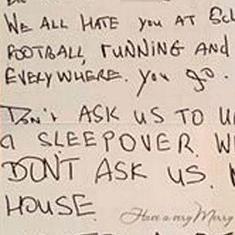 WE ALL HATE you AT
FOOTBALL, RUNNING AND
EVERYWHERE. you go.
DON'T ASK US TO
a SLEEPOVER.
DON'T ASK US.
HOUSE
Have a very Merry